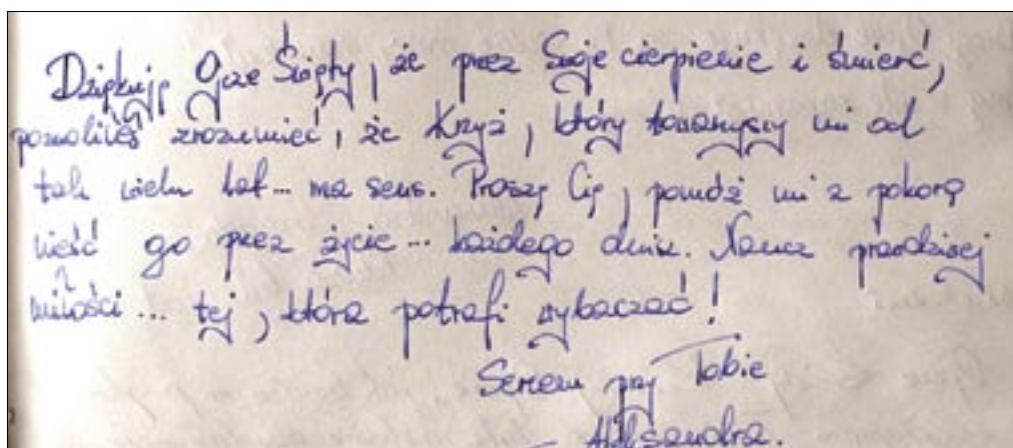 Dziękuję Ojcze Święty, że przez Swoje cierpienie i śmierć,
pozwoliłeś zrozumieć, że Krzyż, który towarzyszy mi od
tak wielu lat... ma sens. Proszę Cię, pomóż mi z pokorą
nieść go przez życie... każdego dnia. Naucz prawdziwej
miłości... tej, która potrafi wybaczać!
Sercem przy Tobie
Aleksandra.